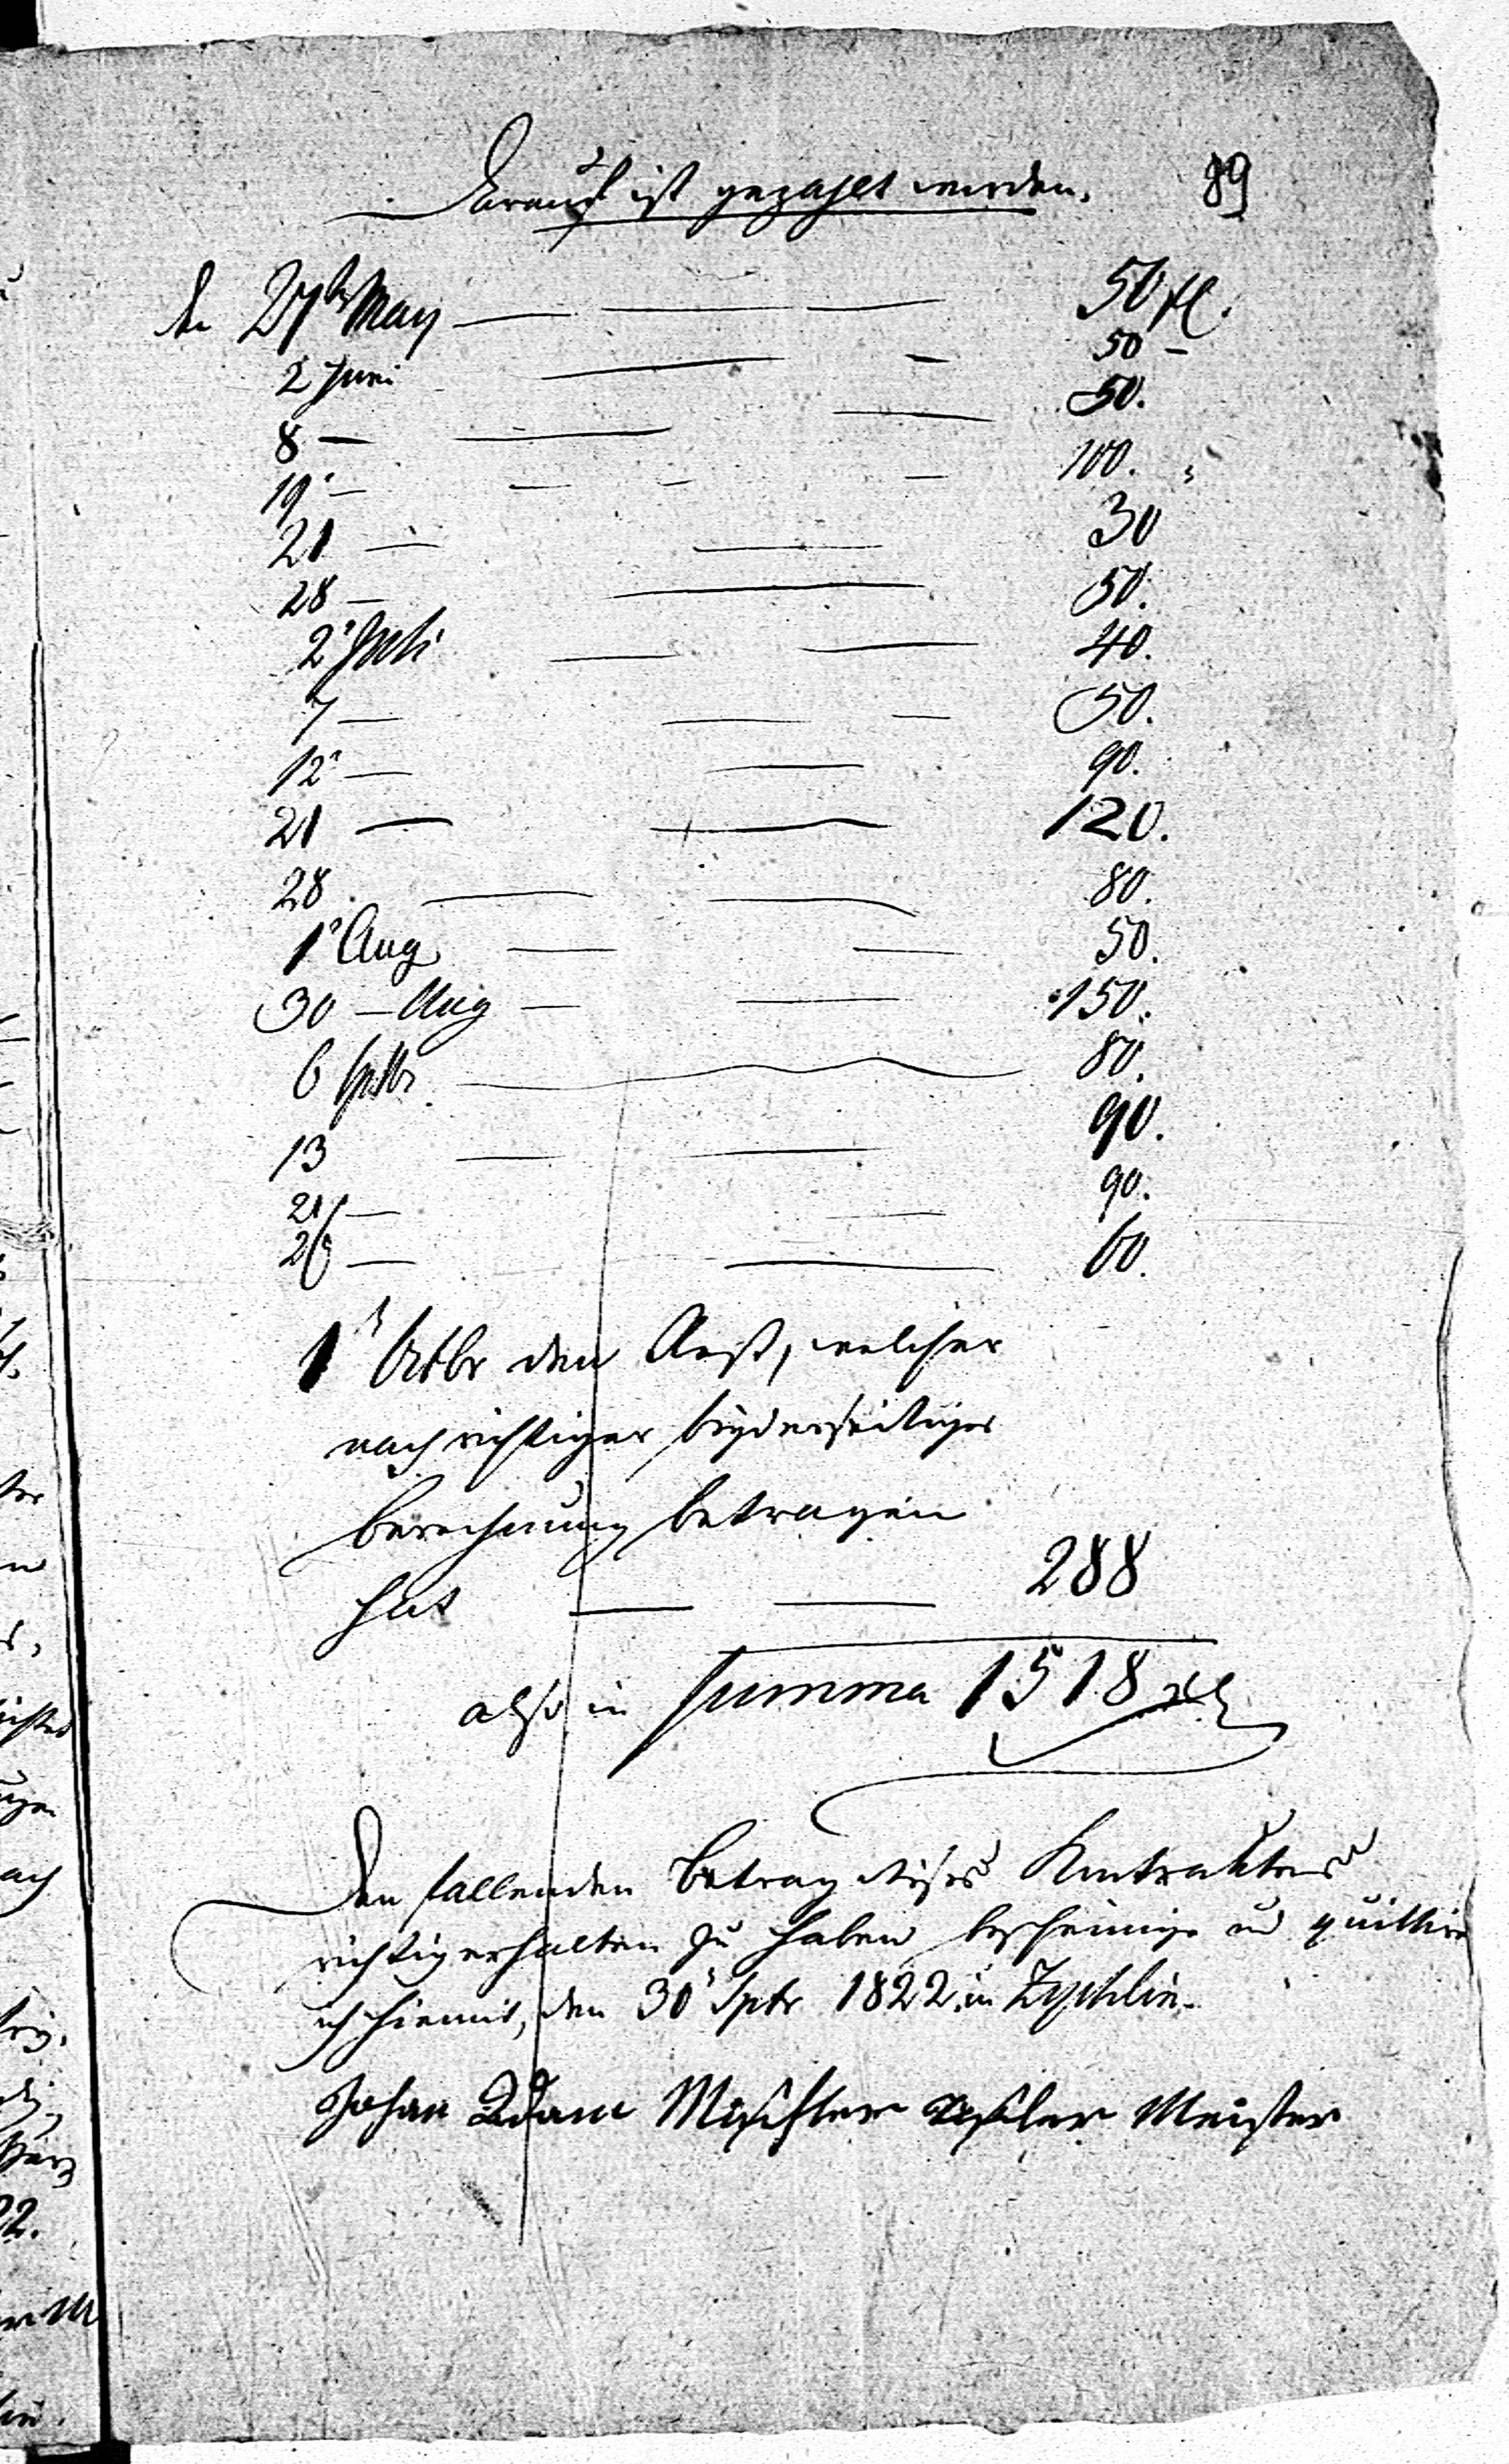 Darauf ist gezahlt worden.
89
den 27ten May — — — — 50 fl.
2 Juni — — 50 –
8 — — — 50.
19' — — — — 100. "
21 — — 30
28 — — 50.
2' Juli — — 40.
7 — — — 50.
12' — — 90.
21 — — 120.
28. — — 80.
1' Aug — — 50.
30 – Aug — — 150.
6 Septbr. — 80.
13 — — 90.
21 — — 90.
26 — — 60.
1' Octbr den Rest, welcher
nach richtiger beyderseitiger
Berechnung betragen
hat — — 288
also in Summa 1518 fl
Den fallenden Betrag dieses Kontraktes
richtig erhalten zu haben bescheinige und quittire
ich hiemit, den 30' Sptr 1822. in Zychlin.
Johan Adam Tischler Meister